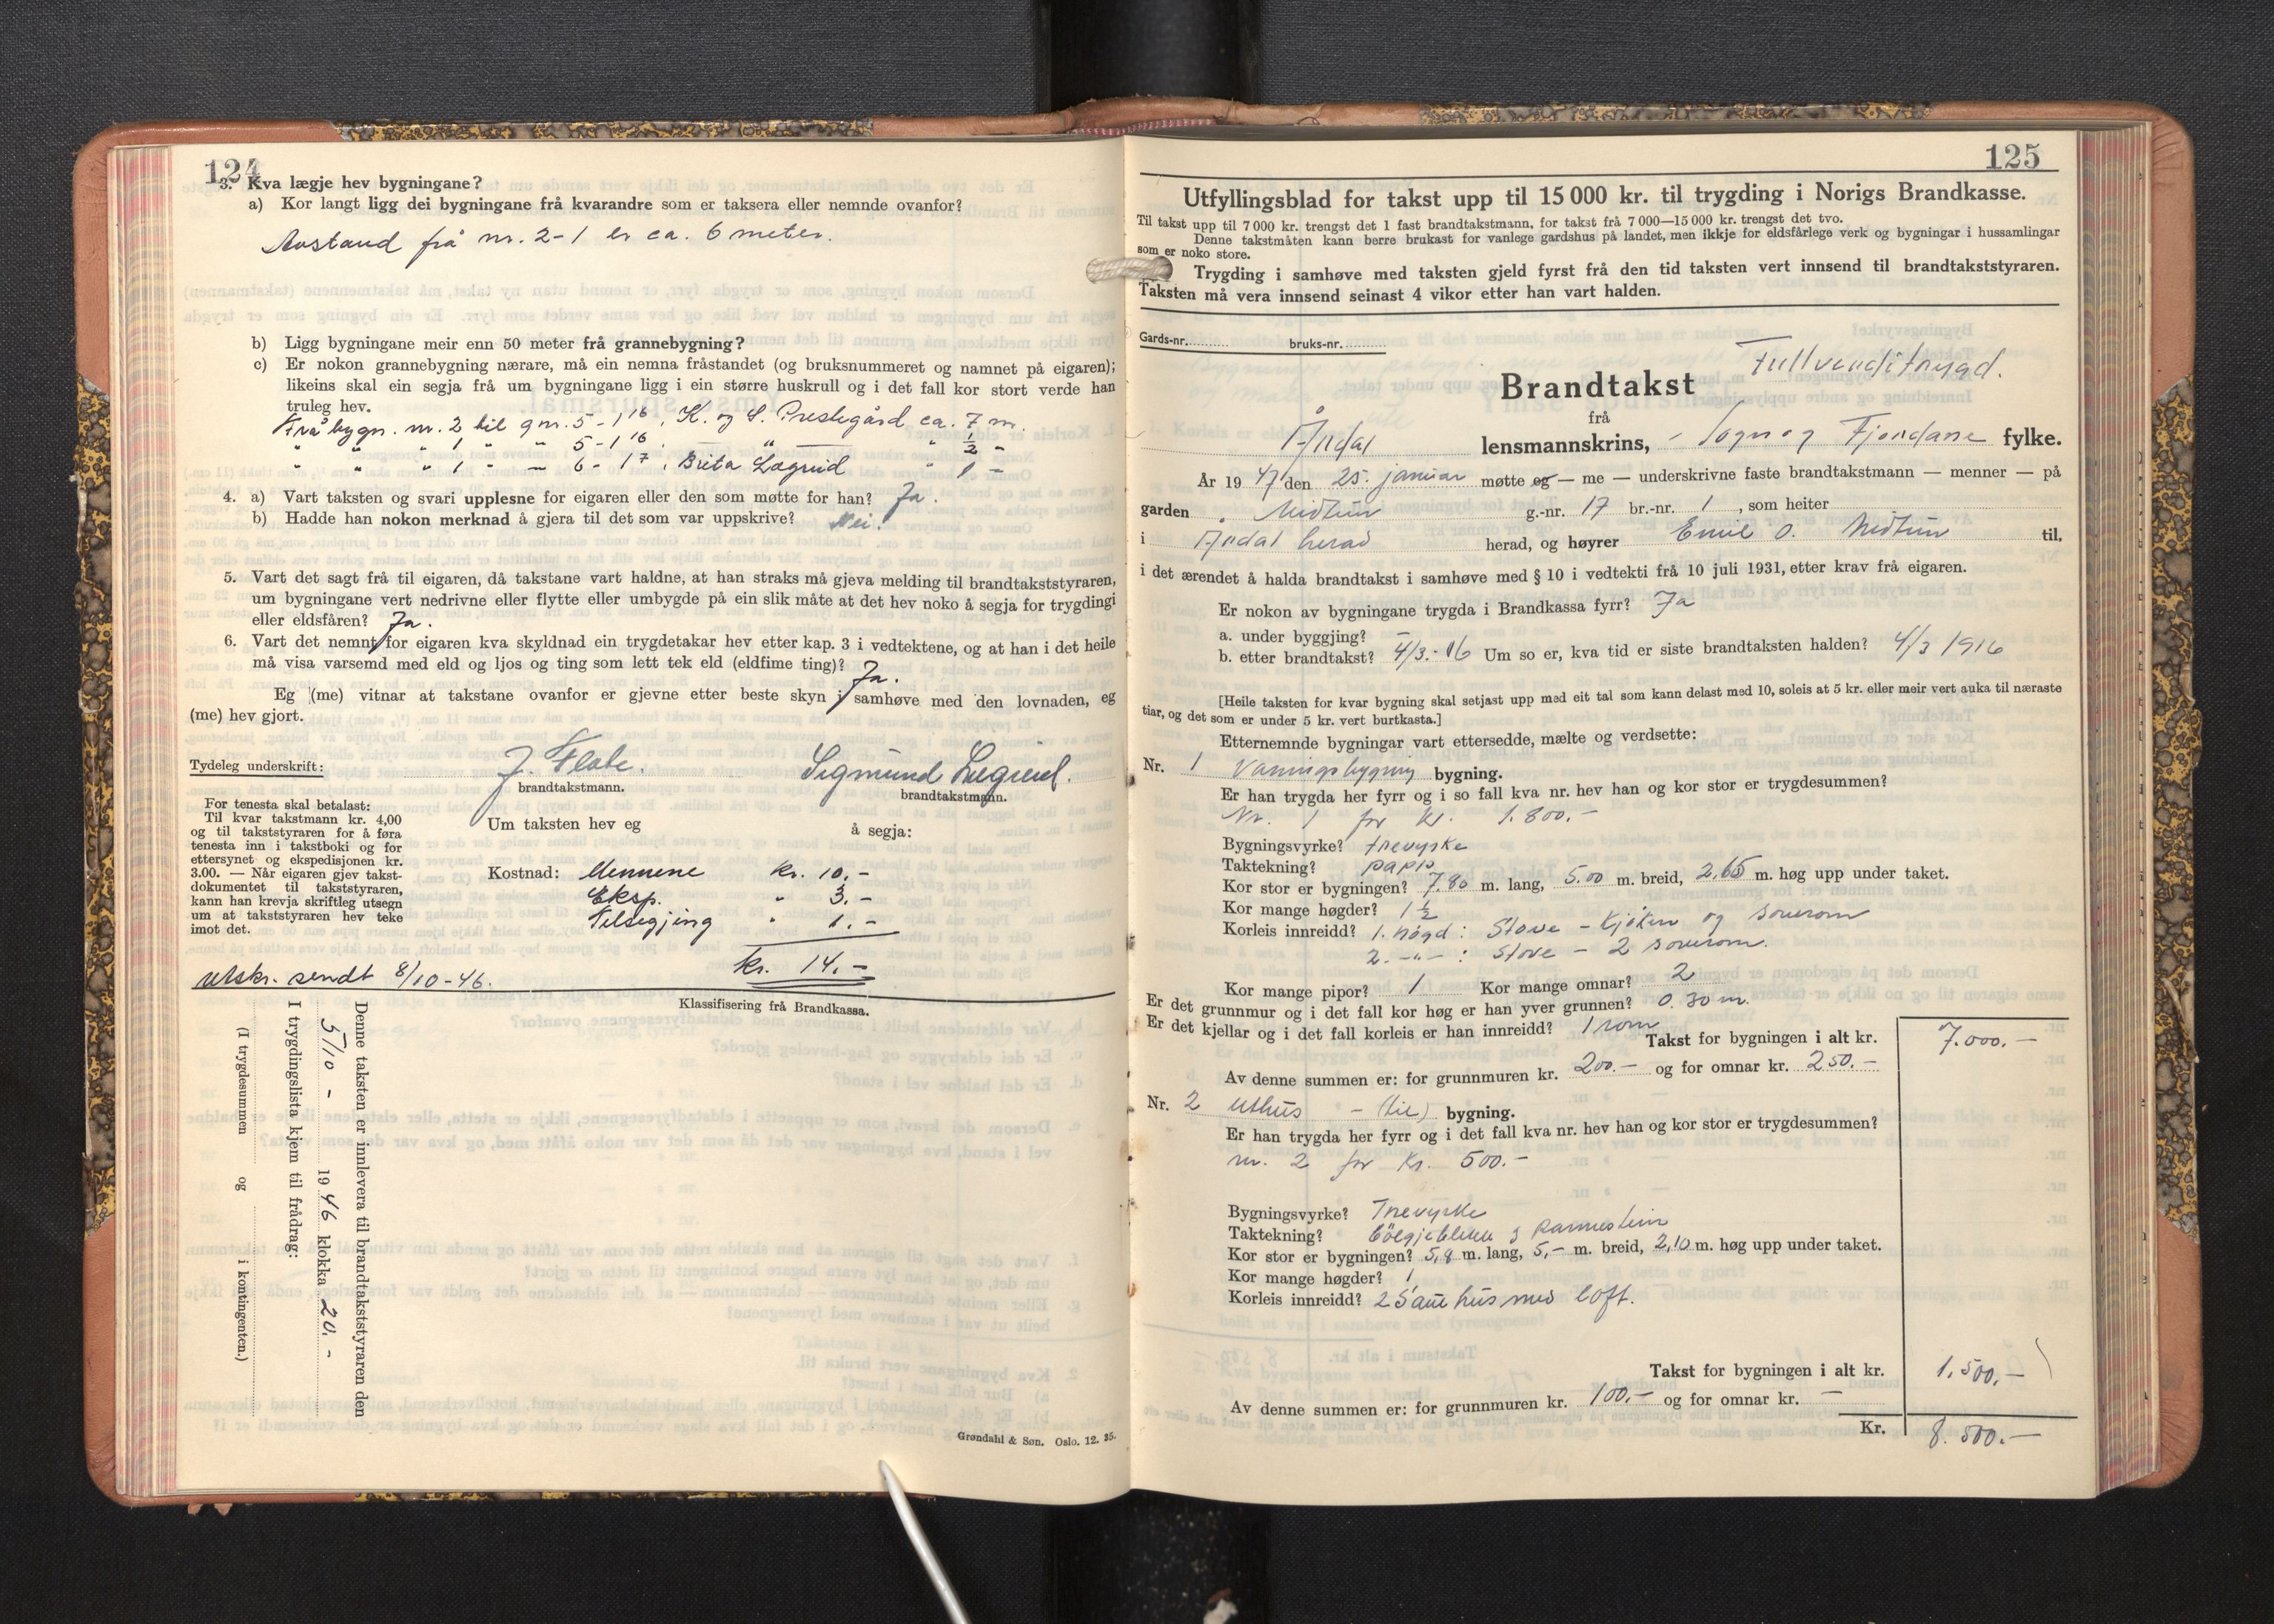 124
3. Kva lægje hev bygningane?
a) Kor langt ligg dei bygningane frå kvarandre som er taksera eller nemnde ovanfor?
Avstand frå nr. 2-1 er ca. 6 meter.
b) Ligg bygningane meir enn 50 meter frå grannebygning?
c) Er nokon grannebygning nærare, må ein nemna fråstandet (og bruksnummeret og namnet på eigaren);
likeins skal ein segja frå um bygningane ligg i ein større huskrull og i det fall kor stort verde han
truleg hev.
Frå bygn. nr. 2 til gnr. 5-1 16, K. og S. Prestegård ca. 7 m.
" " " 1 " " 5-1 16. — " — " ½ "
" " " 1 " — 6-17, Brita Lægreid " 1 —
4. a) Vart taksten og svari upplesne for eigaren eller den som møtte for han? Ja.
b) Hadde han nokon merknad å gjera til det som var uppskrive? Nei.
5. Vart det sagt frå til eigaren, då takstane vart haldne, at han straks må gjeva melding til brandtakststyraren,
um bygningane vert nedrivne eller flytte eller umbygde på ein slik måte at det hev noko å segja for trygdingi
eller eldsfåren? Ja.
6. Vart det nemnt for eigaren kva skyldnad ein trygdetakar hev etter kap. 3 i vedtektene, og at han i det heile
må visa varsemd med eld og ljos og ting som lett tek eld (eldfime ting)? Ja.
Eg (me) vitnar at takstane ovanfor er gjevne etter beste skyn i samhøve med den lovnaden, eg
(me) hev gjort.
Tydeleg underskrift: J. Flate. Sigmund Lægreid.
brandtakstmann. brandtakstmann.
For tenesta skal betalast:
Til kvar takstmann kr. 4,00
og til takststyraren for å føra
tenesta inn i takstboki og for
ettersynet og ekspedisjonen kr.
3.00. — Når eigaren gjev takst-
dokumentet til takststyraren,
kann han krevja skriftleg utsegn
um at takststyraren hev teke
imot det.
Um taksten hev eg å segja:
Kostnad: Mennene kr. 10.-
Eksp. " 3.-
Tilsegjing " 1.-
kr. 14.-
Utskr. sendt 8/10-46.
Klassifisering frå Brandkassa.
Denne taksten er innlevera til brandtakststyraren den
5/10 - 1946 klokka 20.-
I trygdingslista kjem til frådrag:
(I trygdesummen og i kontingenten.)
Grøndahl & Søn. Oslo. 12. 35.
125
Utfyllingsblad for takst upp til 15 000 kr. til trygding i Norigs Brandkasse.
Til takst upp til 7 000 kr. trengst det 1 fast brandtakstmann, for takst frå 7 000—15 000 kr. trengst det tvo.
Denne takstmåten kann berre brukast for vanlege gardshus på landet, men ikkje for eldsfårlege verk og bygningar i hussamlingar
som er noko store.
Trygding i samhøve med taksten gjeld fyrst frå den tid taksten vert innsend til brandtakststyraren.
Taksten må vera innsend seinast 4 vikor etter han vart halden.
Gards-nr. bruks-nr.
Fullverditrygd.
Brandtakst
frå
Årdal lensmannskrins, - Sogn og Fjordane fylke.
År 19 47 den 25. januar møtte eg — me — underskrivne faste brandtakstmann — menner — på
garden Midtun g.-nr. 17 br.-nr. 1, som heiter
i Årdal herad herad, og høyrer Emil O. Midtun til,
i det ærendet å halda brandtakst i samhøve med § 10 i vedtekti frå 10 juli 1931, etter krav frå eigaren.
Er nokon av bygningane trygda i Brandkassa fyrr? Ja
a. under byggjing? —
b. etter brandtakst? 4/3.-16 Um so er, kva tid er siste brandtaksten halden? 4/3 1916
[Heile taksten for kvar bygning skal setjast upp med eit tal som kann delast med 10, soleis at 5 kr. eller meir vert auka til næraste
tiar, og det som er under 5 kr. vert burtkasta.]
Etternemnde bygningar vart ettersedde, mælte og verdsette:
Nr. 1 Våningsbygning bygning.
Er han trygda her fyrr og i so fall kva nr. hev han og kor stor er trygdesummen?
Nr. 1 for kr. 1.800.-
Bygningsvyrke? trevyrke
Taktekning? papp
Kor stor er bygningen? 7.80 m. lang, 5.00 m. breid, 2,65 m. høg upp under taket.
Kor mange høgder? 1 ½
Korleis innreidd? 1. høgd: Stove - kjøken og soverom
2. -"- : Stove - 2 soverom.
Kor mange pipor? 1 Kor mange omnar? 2
Er det grunnmur og i det fall kor høg er han yver grunnen? 0.30 m.
Er det kjellar og i det fall korleis er han innreidd? 1 rom
Takst for bygningen i alt kr. 7.000.-
Av denne summen er: for grunnmuren kr. 200.- og for omnar kr. 250.-
Nr. 2 Uthus - bygning.
Er han trygda her fyrr og i det fall kva nr. hev han og kor stor er trygdesummen?
nr. 2 for kr. 500.-
Bygningsvyrke? Trevyrke
Taktekning? Bölgjeblikk
Kor stor er bygningen? 5,8 m. lang, 5,- m. breid, 2,10 m. høg upp under taket.
Kor mange høgder? 1
Korleis innreidd? 2 Sauehus med loft.
Takst for bygningen i alt kr. 1.500.-
Av denne summen er: for grunnmuren kr. 100.- og for omnar kr. —
Kr. 8.500.-